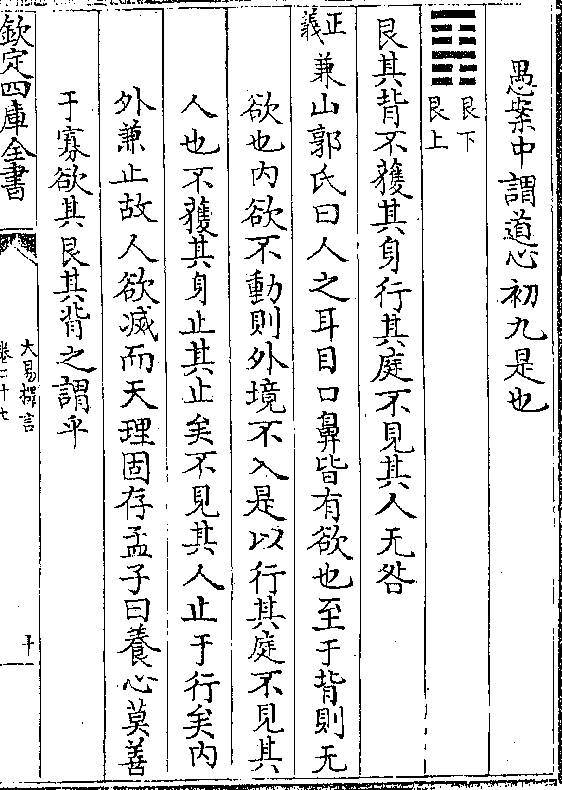 愚案中謂道心初九是也
艮下
艮上
艮其背不獲其身行其庭不見其人无咎
正義兼山郭氏曰人之耳目口鼻皆有欲也至于背則无
欲也内欲不動則外境不入是以行其庭不見其
人也不獲其身止其止矣不見其人止于行矣内
外兼止故人欲滅而天理固存孟子曰養心莫善
于寡欲其艮其背之謂乎
欽定四庫全書
大易擇言
卷二十七
十